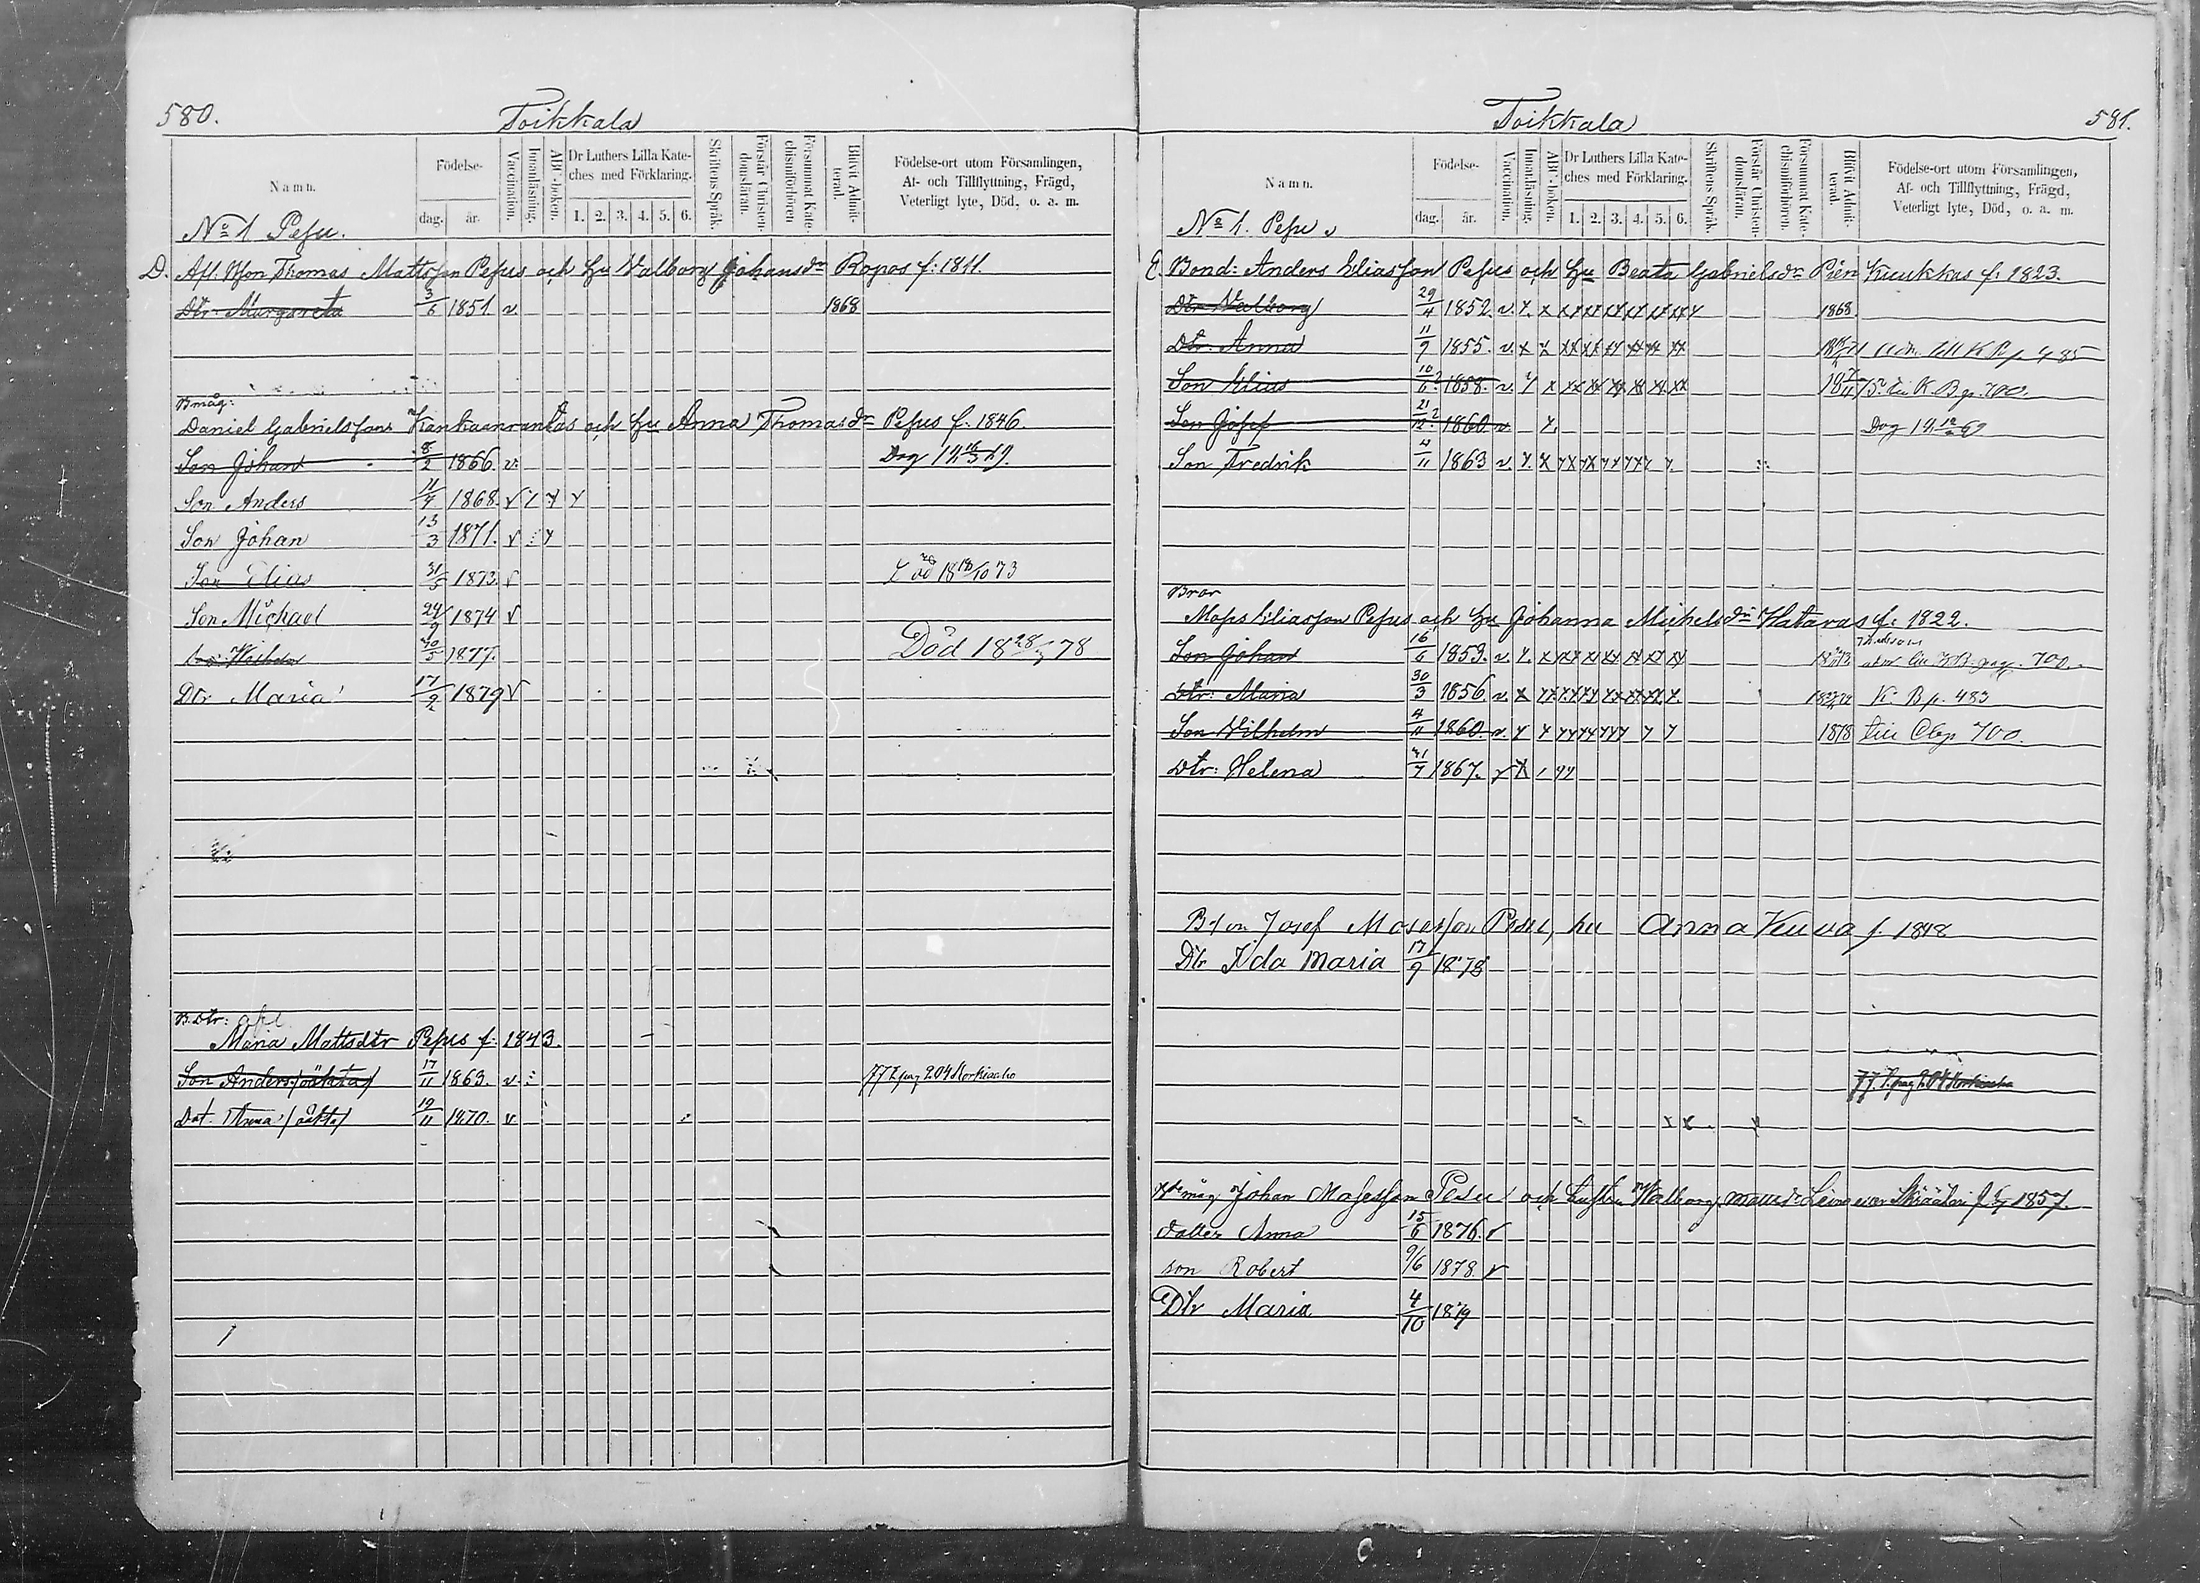 580. Toikkala
Namn. Födelse- dag. år. Vaccination. Innanläsning. ABC-boken. Dr Luthers Lilla Kateches med Förklaring. 1. 2. 3. 4. 5. 6. Skriftens Språk. Förstår Christendomsläran. Försummat Katechismiförhören Blifvit Admitterad. Födelse-ort utom Församlingen, Af- och Tillflyttning, Frägd, Veterligt lyte, Död, o. a. m.
No 1 Pesu.
D. Afl. Bson Thomas Mattsson Pesus och hu Valborg Johansdr Ropos f: 1811.
Dtr Margareta 3/6 1851. v. 1868
Bmåg:
Daniel Gabrielsson Kankaanrantas och hu Anna Thomasdr Pesus f. 1846.
Son Johan 8/2 1866. v.
Son Anders 11/4 1868. v
Son Johan 13/3 1871. v
Son Elias 31/5 1873. v 18 18/10 73
Son Michael 24/9 1874 v
Wilhelm 30/5 1877. Död 18 28/3 78
Dtr Maria 17/2 1879 v
B.Dtr: afl
Maria Mattsdtr Pesus f. 1843.
Son Anders /oäkta/ 17/11 1863. v. 77 pag 204
Dot. Anna /oäkta/ 19/11 1870. v.
Toikkala 581.
Namn. Födelse- dag. år. Vaccination. Innanläsning. ABC-boken. Dr Luthers Lilla Kateches med Förklaring. 1. 2. 3. 4. 5. 6. Skriftens Språk. Förstår Christendomsläran. Försummat Katechismiförhören. Blifvit Admitterad. Födelse-ort utom Församlingen, Af- och Tillflyttning, Frägd, Veterligt lyte, Död, o. a. m.
No 1. Pesu
E. Bond: Anders Eliasson Pesus och hu Beata Gabrielsdr Pien Kuukkas f: 1823.
Dtr Valborg 29/4 1852. v. 1868
Dtr. Anna 11/9 1855. v. till K B p 485
Son Elias 10/6 1858. v. K. B. p. 700.
Son Josef 21/12 1860 v
Son Fredrik 4/11 1863 v.
Bror
Moses Eliasson Pesus och hu Johanna Michelsdr Hataras f: 1822.
Son Johan 16/6 1853. v. pag. 700.
Dtr: Maria 30/3 1856. v. K. B p. 483
Son Vilhelm 4/11 1860. v. 1878 700.
Dtr: Helena 21/7 1867. v
Bson Josef Mosesson Pesu, hu Anna Kuuva f. 1848
Dtr Ida Maria 17/9 1878
pag 204
måg Johan Mosesson Pesu och hustru Walborg f. 1857.
dotter Anna 15/6 1876. v
son Robert 9/6 1878. v
Dtr Maria 4/10 1879